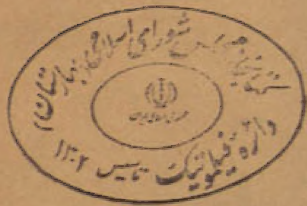 کتابخانه مجلس شورای اسلامی (بهارستان)
جمهوری اسلامی ایران
دائره فیلمونیک تاسیس ۱۳۰۲